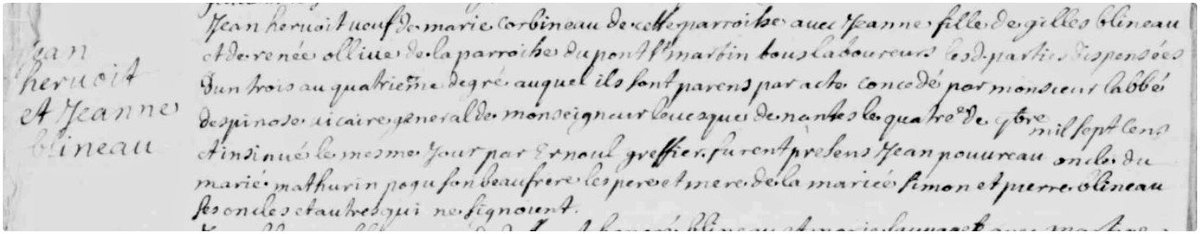 Jean hervoit veuf de marie corbineau de cette parroisse avec Jeanne fille de gilles blineau
et de renée ollive de la parroisse du pont st martin tous laboureurs lesd. parties dispensées
Jean
hervoit
et Jeanne
blineau
D'un trois au quatrieme degré auquel ils sont parens par acte concedé par monsieur l'abbé
despinose vicaire general de monseigneur levesque de nantes le quatre de 9bre mil sept cens
et insinué le mesme jour par Ernoul greffier, furent présens Jean pouvreau oncle du
marié mathurin poqu son beaufrere les pere et mere de la mariée simon et pierre blineau
ses oncles et autres qui ne signoient.